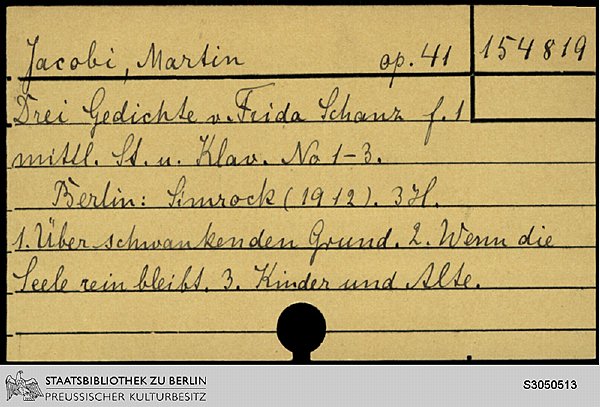 Jacobi, Martin op. 41 154819
Drei Gedichte v. Frida Schanz f. 1
mittl. St. u. Klav. No 1-3.
Berlin: Simrock (1912). 3 H.
1. Über schwankenden Grund. 2. Wenn die
Seele rein bleibt. 3. Kinder und Alte.
STAATSBIBLIOTHEK ZU BERLIN
PREUSSISCHER KULTURBESITZ
S3050513